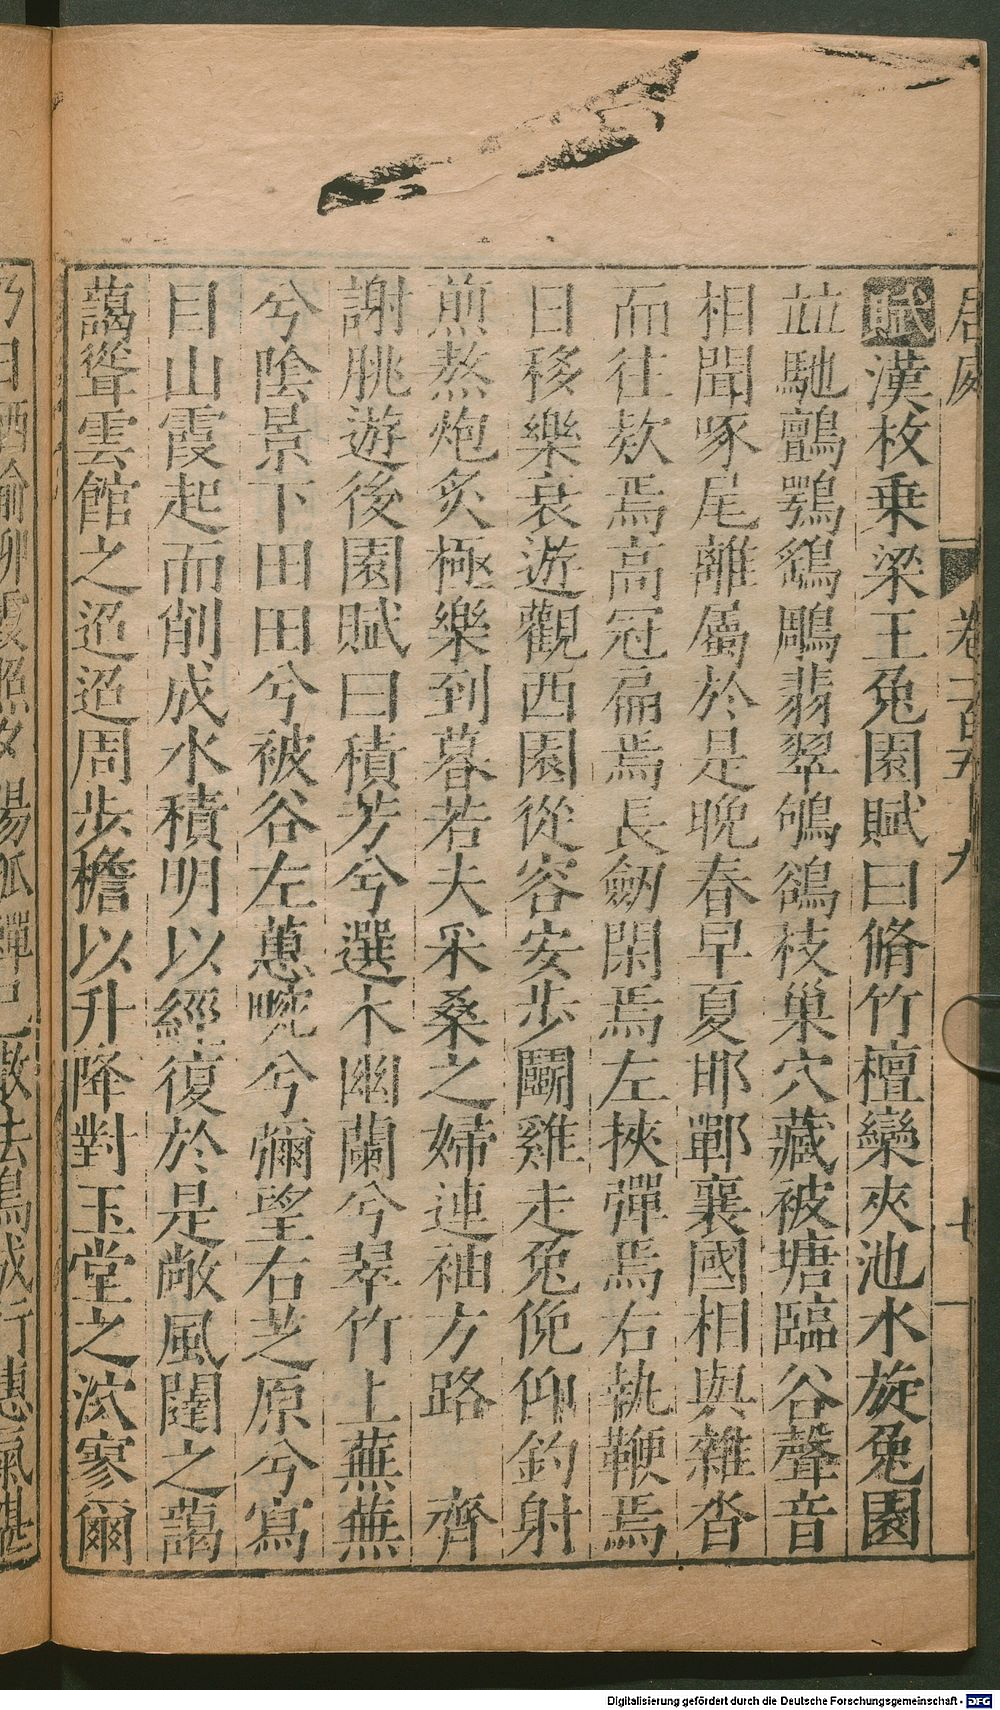 賦漢枚乗梁王兔園賦曰脩竹檀欒夾池水旋兔園
並馳鸇鶚鷂鵰翡翠鴝鵒枝巢穴藏被塘臨谷聲音
相聞啄尾離屬於是晚春早夏邯鄲襄國相與雜沓
而往欵焉高冠扁焉長劒閑焉左挾彈焉右執鞭焉
日移樂衰遊觀西園從容安步鬭雞走兔俛仰釣射
煎熬炮炙極樂到暮若夫采桑之婦連袖方路 齊
謝朓遊後園賦曰積芳兮選木幽蘭兮翠竹上蕪蕪
兮陰景下田田兮被谷左蕙畹兮彌望右芝原兮寫
目山霞起而削成水積明以經復於是敞風闥之藹
藹聳雲館之迢迢周步檐以升降對玉堂之泬寥爾
Digitalisierung gefördert durch die Deutsche Forschungsgemeinschaft - DFG